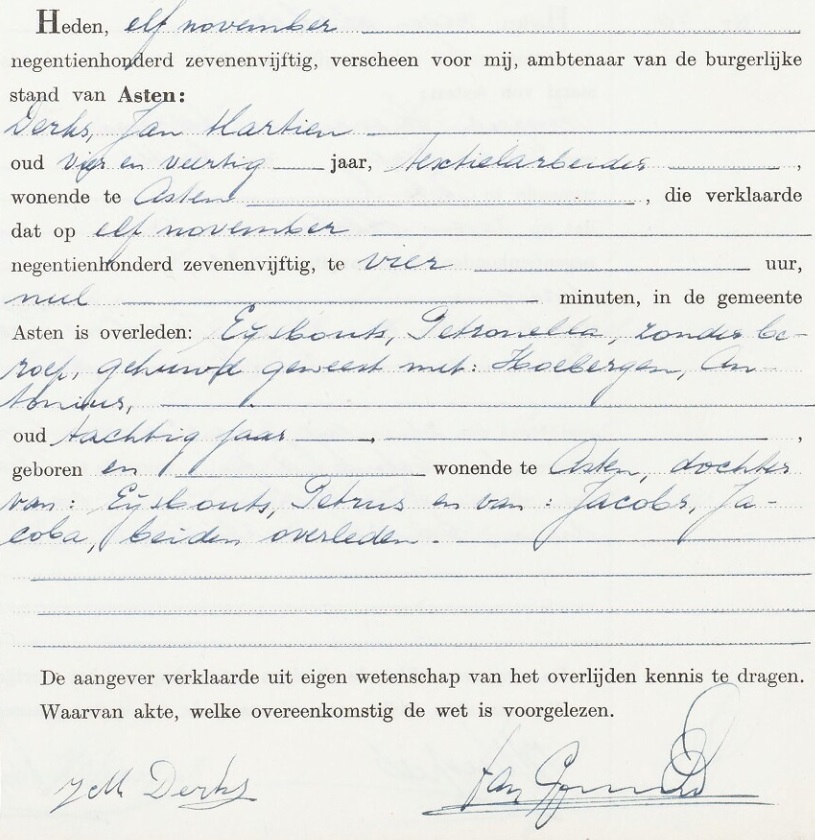 Heden, elf november
negentienhonderd zevenenvijftig, verscheen voor mij, ambtenaar van de burgerlijke
stand van Asten:
Derks, Jan Martien
oud vier en veertig jaar, textielarbeider ,
wonende te Asten , die verklaarde
dat op elf november
negentienhonderd zevenenvijftig, te vier uur,
nul minuten, in de gemeente
Asten is overleden: Eijsbouts, Petronella, zonder be-
roep, gehuwd geweest met: Hoebergen, An-
tonius,
oud tachtig jaar , ,
geboren en wonende te Asten, dochter
van: Eijsbouts, Petrus en van: Jacobs, Ja-
coba, beiden overleden.
De aangever verklaarde uit eigen wetenschap van het overlijden kennis te dragen.
Waarvan akte, welke overeenkomstig de wet is voorgelezen.
JM Derks